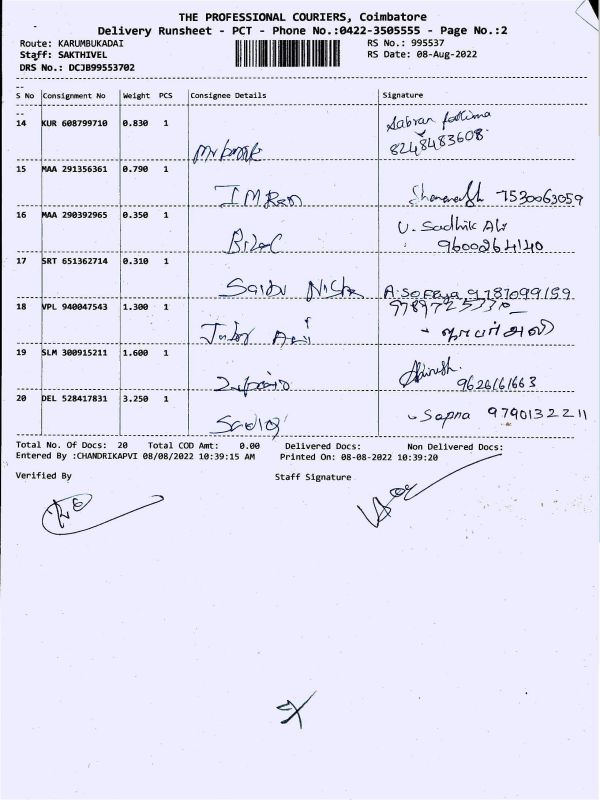 THE PROFESSIONAL COURIERS, Coimbatore
Delivery Runsheet - PCT - Phone No.:0422-3505555 - Page No.:2
Route: KARUMBUKADAI RS No.: 995537
Staff: SAKTHIVEL RS Date: 08-Aug-2022
DRS No.: DCJB99553702
S No Consignment No Weight PCS Consignee Details Signature
14 KUR 608799710 0.830 1 Sabran fathima
8248483608
15 MAA 291356361 0.790 1
IMRan 7530063059
16 MAA 290392965 0.350 1 U. Sadhik Ali
Bilal 9600264140
17 SRT 651362714 0.310 1
Saidu Nisha A.Sofiya 9787099159
18 VPL 940047543 1.300 1
Ali ஜாபர் அலி
19 SLM 300915211 1.600 1
9626161663
20 DEL 528417831 3.250 1 Sapna 9790132211
Sadiq
Total No. Of Docs: 20 Total COD Amt: 0.00 Delivered Docs: Non Delivered Docs:
Entered By :CHANDRIKAPVI 08/08/2022 10:39:15 AM Printed On: 08-08-2022 10:39:20
Verified By Staff Signature